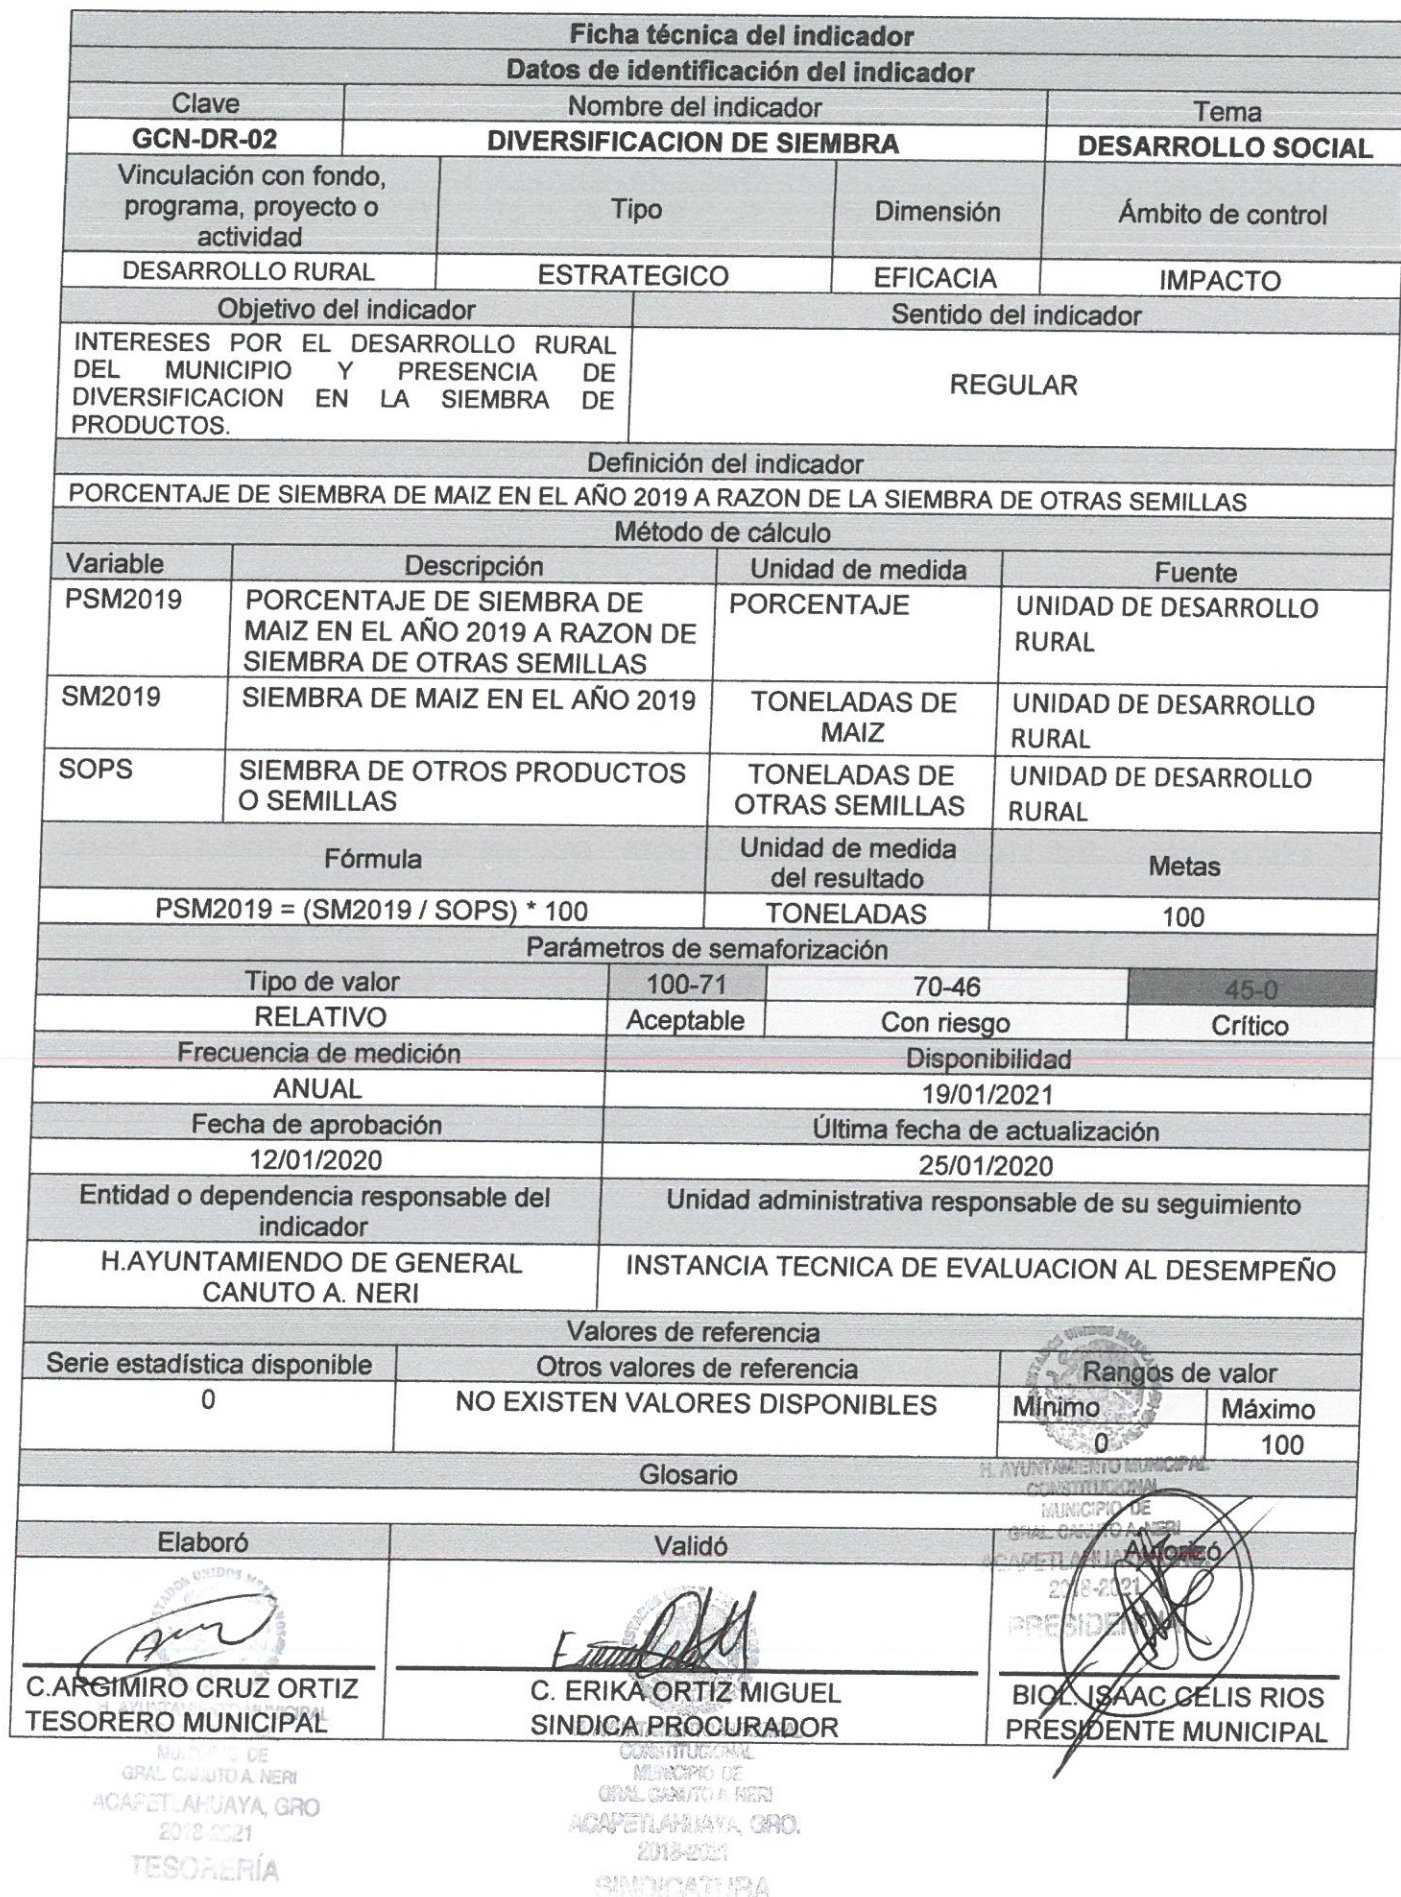 Ficha técnica del indicador
Datos de identificación del indicador
Clave
Nombre del indicador
Tema
GCN-DR-02
DIVERSIFICACION DE SIEMBRA
DESARROLLO SOCIAL
Vinculación con fondo,
programa, proyecto o
actividad
Tipo
Dimensión
Ámbito de control
DESARROLLO RURAL
ESTRATEGICO
EFICACIA
IMPACTO
Objetivo del indicador
Sentido del indicador
INTERESES POR EL DESARROLLO RURAL
DEL MUNICIPIO Y PRESENCIA DE
DIVERSIFICACION EN LA SIEMBRA DE
PRODUCTOS.
REGULAR
Definición del indicador
PORCENTAJE DE SIEMBRA DE MAIZ EN EL AÑO 2019 A RAZON DE LA SIEMBRA DE OTRAS SEMILLAS
Método de cálculo
Variable
Descripción
Unidad de medida
Fuente
PSM2019
PORCENTAJE DE SIEMBRA DE
MAIZ EN EL AÑO 2019 A RAZON DE
SIEMBRA DE OTRAS SEMILLAS
PORCENTAJE
UNIDAD DE DESARROLLO
RURAL
SM2019
SIEMBRA DE MAIZ EN EL AÑO 2019
TONELADAS DE
MAIZ
UNIDAD DE DESARROLLO
RURAL
SOPS
SIEMBRA DE OTROS PRODUCTOS
O SEMILLAS
TONELADAS DE
OTRAS SEMILLAS
UNIDAD DE DESARROLLO
RURAL
Fórmula
Unidad de medida
del resultado
Metas
PSM2019 = (SM2019 / SOPS) * 100
TONELADAS
100
Parámetros de semaforización
Tipo de valor
100-71
70-46
45-0
RELATIVO
Aceptable
Con riesgo
Crítico
Frecuencia de medición
Disponibilidad
ANUAL
19/01/2021
Fecha de aprobación
Última fecha de actualización
12/01/2020
25/01/2020
Entidad o dependencia responsable del
indicador
Unidad administrativa responsable de su seguimiento
H.AYUNTAMIENDO DE GENERAL
CANUTO A. NERI
INSTANCIA TECNICA DE EVALUACION AL DESEMPEÑO
Valores de referencia
Serie estadística disponible
Otros valores de referencia
Rangos de valor
0
NO EXISTEN VALORES DISPONIBLES
Mínimo
Máximo
0
100
Glosario
H. AYUNTAMIENTO MUNICIPAL
CONSTITUCIONAL
MUNICIPIO DE
GRAL. CANUTO A. NERI
2018-2021
PRESIDENCIA
Elaboró
Validó
Autorizó
C.ARGIMIRO CRUZ ORTIZ
TESORERO MUNICIPAL
C. ERIKA ORTIZ MIGUEL
SINDICA PROCURADOR
BIOL. ISAAC CELIS RIOS
PRESIDENTE MUNICIPAL
MUNICIPIO DE
GRAL. CANUTO A. NERI
ACAPETLAHUAYA, GRO
2018-2021
TESORERÍA
CONSTITUCIONAL
MUNICIPIO DE
GRAL. CANUTO A. NERI
ACAPETLAHUAYA, GRO.
2018-2021
SINDICATURA